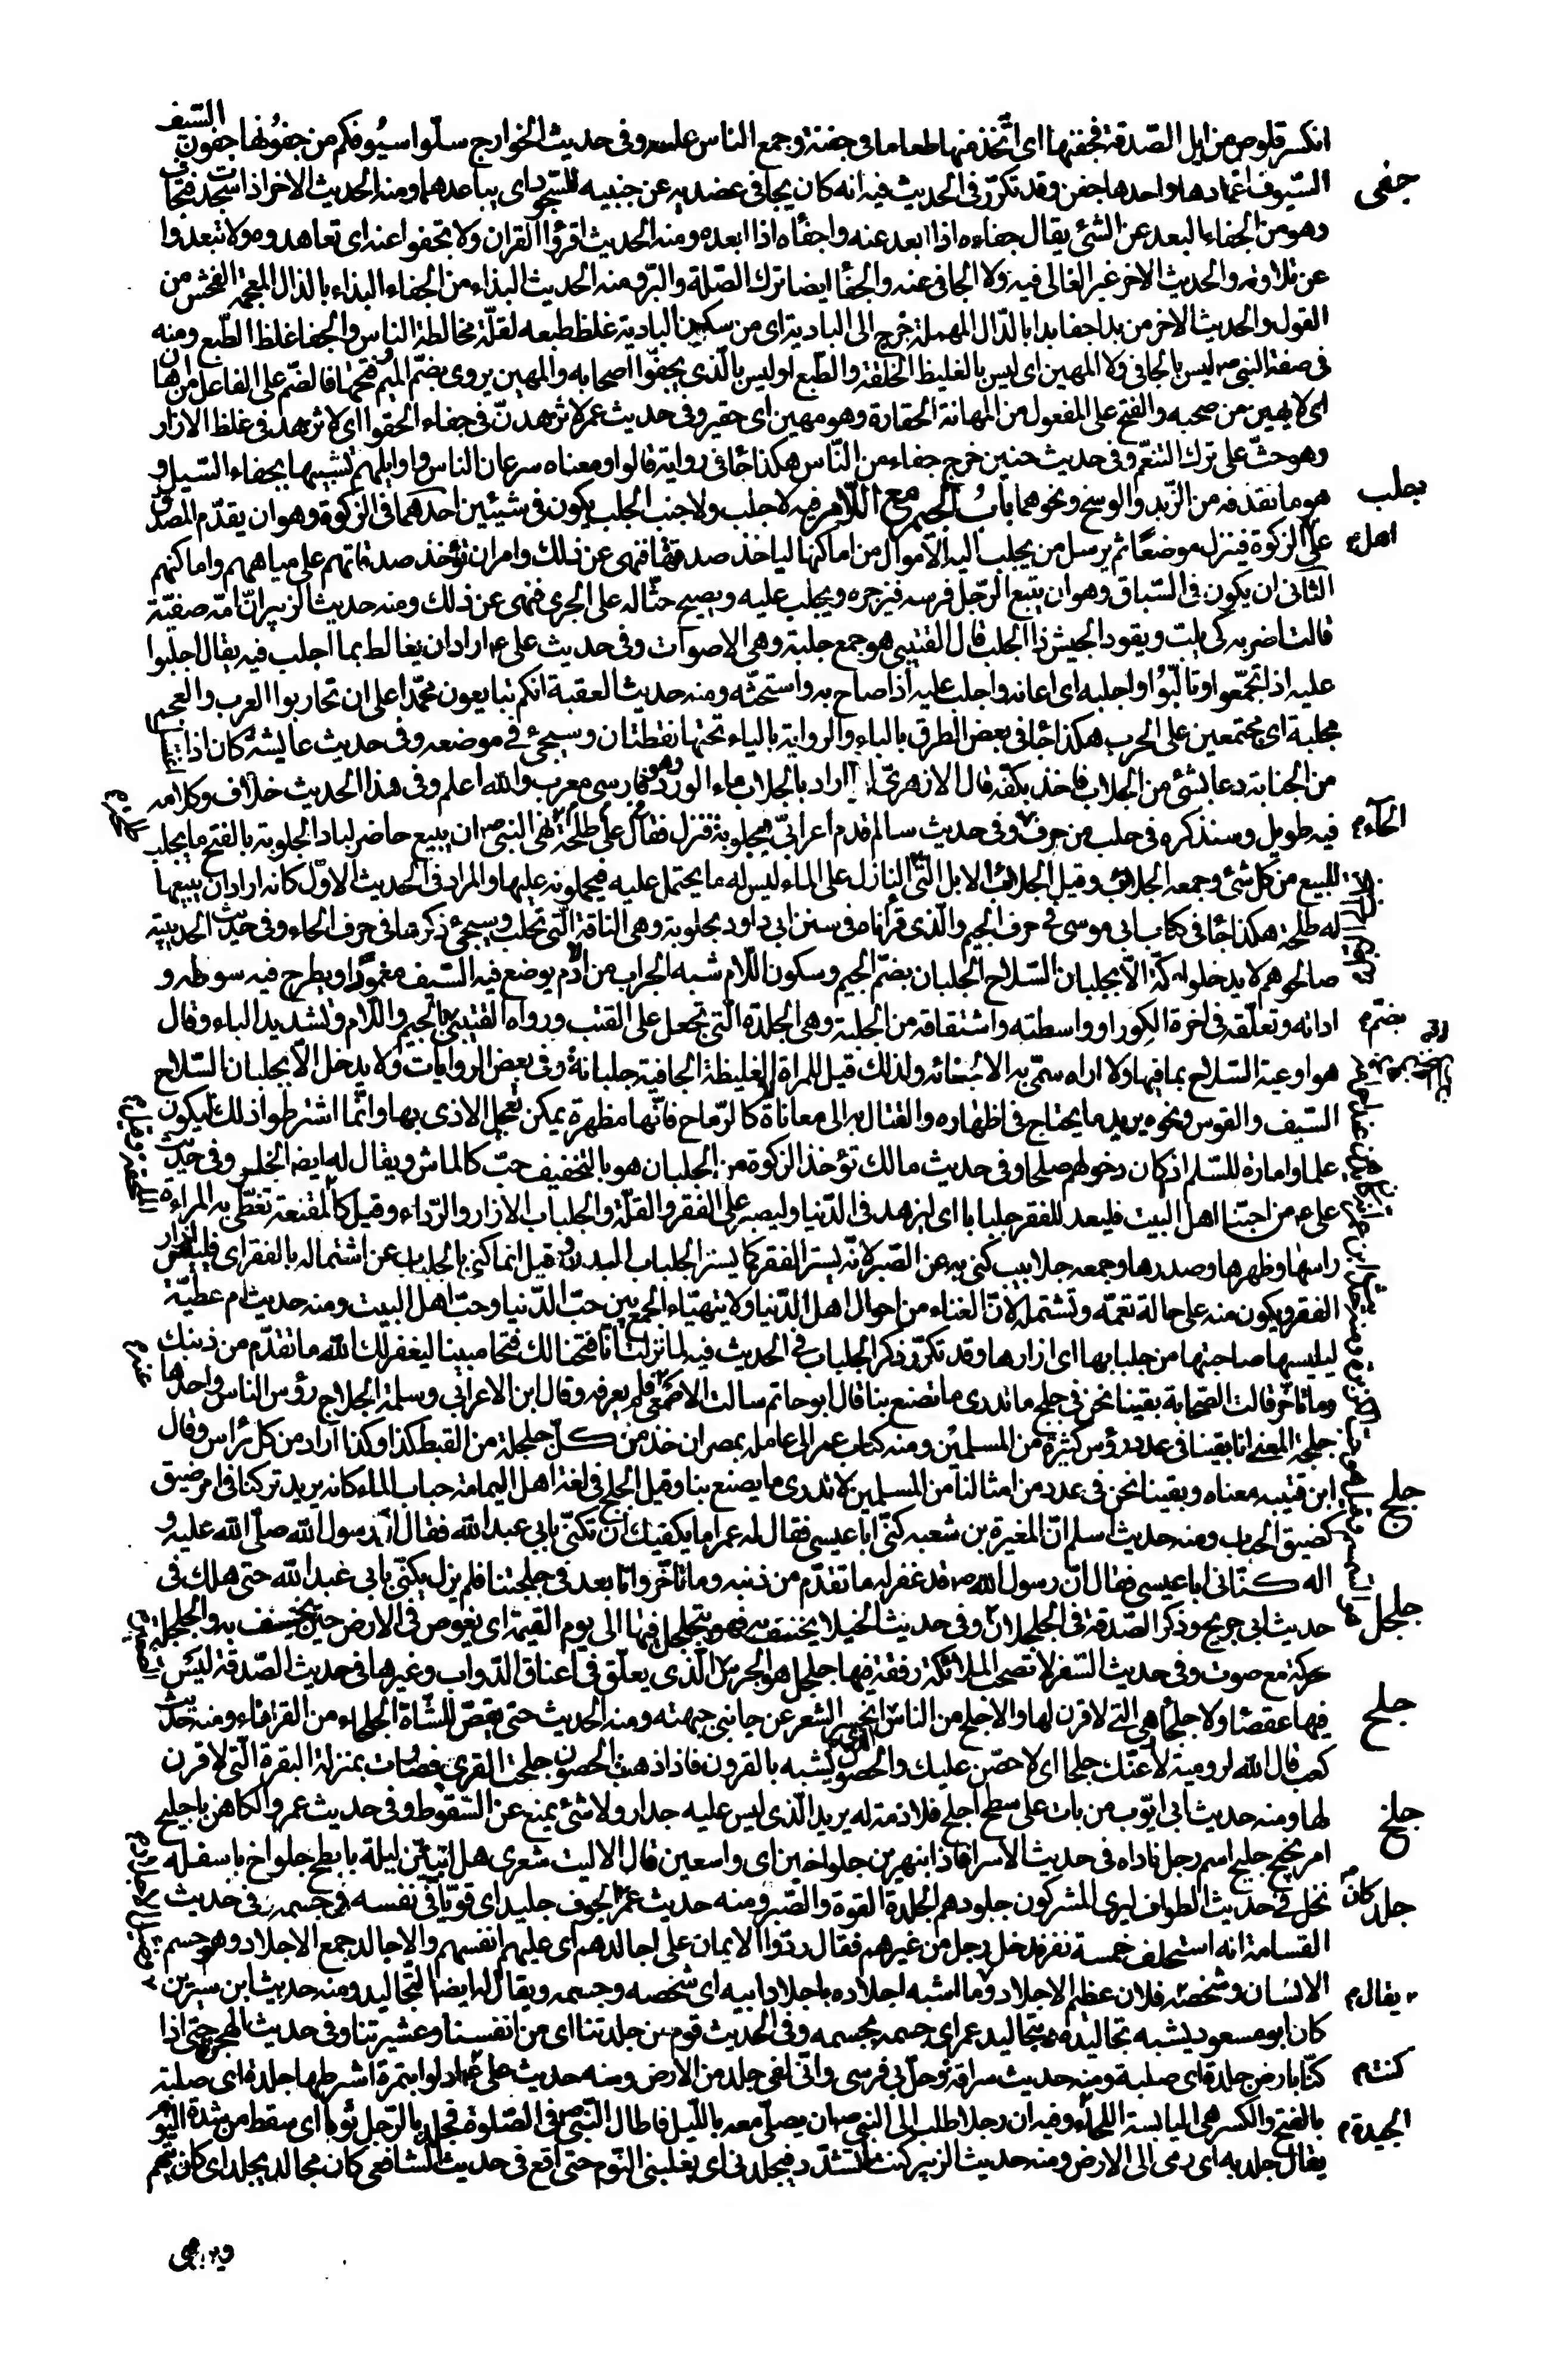 انكسر قلوص من ابل الصّدقة فجفنها اى اتّخذ منها طعاما فى جفنة وجمع الناس عليه وفى حديث الخوارج سلّوا سيُوفكم من جفُونها جفون السّيف
جفى
السّيوف اغمادها واحدها جفن وقد تكرّر فى الحديث فيه انه كان يجافى عضديه عن جنبيه للسّجود اى يباعدهما ومنه الحديث الاخر اذا سجدت فتجاف
وهو من الجفاء البعد عن الشئ يقال جفاه اذا بعد عنه واجفاه اذا ابعده ومنه الحديث اقرؤا القران ولا تجفوا عنه اى تعاهدوه ولا تبعدوا
عن تلاوته والحديث الاخر غير الغالى فيه ولا الجافى عنه والجفا ايضا ترك الصّلة والبرّ ومنه الحديث البذاء من الجفاء البذاء بالذال المعجمة الفحش من
القول والحديث الاخر من بدا جفا بدا بالدّال المهملة خرج الى البادية اى من سكن البادية غلظ طبعه لقلّة مخالطة الناس والجفا غلظ الطّبع ومنه
فى صفة النبى ص ليس بالجافى ولا المهين اى ليس بالغليظ الخلقة والطّبع او ليس بالّذى يجفوا اصحابه والمهين يروى بضمّ الميم وفتحها فالضمّ على الفاعل من اهان
اى لا يهين من صحبه والفتح على المفعول من المهانة الحقارة وهو مهين اى حقير وفى حديث عمر لا تزهدنّ فى جفاء الحقو اى لا تزهد فى غلظ الازار
وهو حثّ على ترك التنعّم وفى حديث حنين خرج جفاء من النّاس هكذا جاء فى رواية قالوا ومعناه سرعان الناس واوايلهم تشبيها بجفاء السّيل و
جلب
هو ما تقذفه من الزّبد والوسخ ونحوهما بابُ الجيم مع اللّام فيه لا جلب ولا جنب الجلب يكون فى شيئين احدهما فى الزكوة وهو ان يقدّم المصدّق
اهل م
على الزكوة فينزل موضعًا ثم يرسل من يجلب اليه الاموال من اماكنها لياخذ صدقتها فنهى عن ذلك وامر ان تؤخذ صدقاتهم على مياههم واماكنهم
الثانى ان يكون فى السّباق وهو ان يتبع الرّجل فرسه فيزجره ويجلب عليه ويصيح حثّا له على الجرى فنهى عن ذلك ومنه حديث الزبير انّ امّه صفيّة
قالت اضربه كى يلبّ ويقود الجيش ذا الجلب قال القتيبى هو جمع جلبة وهى الاصوات وفى حديث على ع اراد ان يغالط بما اجلب فيه يقال اجلبوا
عليه اذا تجمّعوا وتالّبُوا واجلبه اى اعانه واجلب عليه اذا صاح به واستحثّه ومنه حديث العقبة انكم تبايعون محمّدا على ان تحاربوا العرب والعجم
مجلبة اى مجتمعين على الحرب هكذا جاء فى بعض الطرق بالباء والرواية بالياء تحتها نقطتان وسيجئ فى موضعه وفى حديث عايشة كان اذا
من الجنابة دعا بشئ من الجلاب فاخذ بكفّه قال الازهرىّ اراد بالجلاب ماء الورد وهو فارسى معرب والله اعلم وفى هذا الحديث خلاف وكلام
الحاء م
فيه طويل وسنذكره فى حلب من حرف وفى حديث سالم قدم اعرابىّ بجلوبة فنزل على طلحة فقال نهى النبى ص ان يبيع حاضر لباد الجلوبة بالفتح ما يجلب
للبيع من كل شئ وجمعه الجلائب وقيل الجلائب الابل الّتى النازل على الماء ليس له ما يحتمل عليه فيحملونه عليها والمراد فى الحديث الاوّل كانه اراد ان يبيعها
له طلحة هكذا جاء فى كتاب ابى موسى فى حرف الجيم والّذى قراناه فى سنن ابى داود بحلوبة وهى الناقة الّتى تحلب وسيجئ ذكرها فى حرف الحاء وفى حديث الحديبية
صالحوهم لا يدخلوا مكّة الّا بجلبان السّلاح الجلبان بضمّ الجيم وسكون اللّام شبه الجراب من الادم يوضع فيه السّيف مغمودًا ويطرح فيه سوطه و
بضمّ م
اداته وتعلّقه فى اخرة الكور او واسطته واشتقاقه من الجلبة وهى الجلدة الّتى تجعل على القتب ورواه القتيبى بالجيم واللّام وتشديد الباء وقال
هو اوعية السّلاح بما فيها ولا اراه سمّى به الّا لجفائه ولذلك قيل للمراة الغليظة الجافية جلبانة وفى بعض الروايات ولا يدخل الّا بجلبان السّلاح
السّيف والقوس ونحوه يريد ما يحتاج فى اظهاره والقتال به الى معاناة لا كالرّماح فانّها مظهرة يمكن تعجيل الاذى بها وانّما اشترطوا ذلك ليكون
علما وامارة للسّلم اذ كان دخولهم صلحا وفى حديث مالك تؤخذ الزكوة من الجلبان هو بالتخفيف حبّ كالماش ويقال له ايضا الخلر وفى حديث
على ع من احبّنا اهل البيت فليعد للفقر جلبابا اى ليزهد فى الدّنيا وليصبر على الفقر والقلّة والجلباب الازار والرّداء وقيل كالمقنعة تغطّى به المراءة
راسها وظهرها وصدرها وجمعه جلابيب كنى به عن الصّبر لانّه يستر الفقر كما يستر الجلباب البدن وقيل انما كنى بالجلباب عن اشتماله بالفقر اى فليلبس ازار
الفقر ويكون منه على حالة تعمّه وتشتمله لانّ الغناء من احوال اهل الدّنيا ولا يتهيّاء الجمع بين حبّ الدّنيا وحبّ اهل البيت ومنه حديث ام عطيّة
لتلبسها صاحبتها من جلبابها اى ازارها وقد تكرّر ذكر الجلباب فى الحديث فيه لما نزلت انّا فتحنا لك فتحا مبينا ليغفر لك الله ما تقدّم من ذنبك
وما تاخّر قالت الصّحابة بقينا نحن فى جلج ما ندرى ما يصنع بنا قال ابو حاتم سالت الاصمعى فلم يعرفه وقال ابن الاعرابى وسلمة الجلاج رؤس الناس واحدها
جلجة المعنى انا بقينا فى عدد رؤس كثيرة من المسلمين ومنه كتاب عمر الى عامله بمصر ان خذ من كلّ جلجلة من القبط كذا وكذا اراد من كل راس وقال
جلج
ابن قتيبه معناه وبقينا نحن فى عدد من امثالنا من المسلمين لا ندرى ما يصنع بنا وقيل الجلج فى لغة اهل اليمامة حباب الماء كانه يريد تركنا فى امر ضيق
كضيق الحباب ومنه حديث اسلم انّ المغيرة بن شعبه كنّى ابا عيسى فقال له عمر اما يكفيك ان تكنّى بابى عبد الله فقال انّ رسول الله صلّى الله عليه و
اله كنّانى ابا عيسى فقال انّ رسول الله ص قد غفر له ما تقدّم من ذنبه وما تاخّر وانّا بعد فى جلجتنا فلم يزل يكنّى بابى عبد الله حتى هلك فى
جلجل
حديث ابى جريج وذكر الصّدقة فى الجلجلان وفى حديث الخيلا يخسف به فهو يتجلجل فيها الى يوم القيمة اى يغوص فى الارض حين يخسف به والجلجلة
حركة مع صوت وفى حديث السّفر لا تصحب الملائكة رفقة فيها جلجل هو الجرس الّذى يعلّق فى اعناق الدّواب وغيرها فى حديث الصّدقة ليس
جلح
فيها عقصاء ولا جلحاء هى التى لا قرن لها والاجلح من الناس الّذى انحسر الشعر عن جانبى جبهته ومنه الحديث حتى يقصّ للشّاة الجلحاء من القرناء ومنه حديث
كعب قال الله لرومية لادعنّك جلحا اى لا حصن عليك والحصون تشبه بالقرون فاذا ذهبت الحصون جلحت القرى فصارت بمنزلة البقرة الّتى لا قرن
لها ومنه حديث ابى ايّوب من بات على سطح اجلح فلا ذمة له يريد الّذى ليس عليه جدار ولا شئ يمنع عن السّقوط وفى حديث عمر والكاهن يا جليح
جلخ
امر نجيح جليح اسم رجل ناداه فى حديث الاسرا فاذا بنهرين جلواخين اى واسعين قال الا ليت شعرى هل ابيتنّ ليلة بابطح جلواخ باسفله
جلد
نخل فى حديث الطواف ليرى المشركون جلدهم الجلد القوة والصّبر ومنه حديث عمر كان اجوف جليدا اى قويّا فى نفسه فى جسمه فى حديث
القسامة انه استحلف خمسة نفر فدخل رجل من غيرهم فقال ردّوا الايمان على اجالدهم اى عليهم انفسهم والاجالد جمع الاجلاد وهو جسم
يقال م
الانسان وشخصه فلان عظيم الاجلاد وما اشبه اجلاده باجلاد ابيه اى شخصه وجسمه ويقال له ايضا التجاليد ومنه حديث ابن سيرين
كان ابو مسعود يشبه تجاليده بتجاليد عمر اى جسمه بجسمه وفى الحديث قوم من جلدتنا اى من انفسنا وعشيرتنا وفى حديث الهجرة حتى اذا
كنت م
كنّا بارض جلدة اى صلبة ومنه حديث سراقة وحل بى فرسى وانّى لفى جلد من الارض ومنه حديث على ع ادلوا بتمرة اشترطها جلدة اى صلبة
الجيدة م
بالفتح والكسر هى اليابسة اللحاء وفيه ان رجلا طلب الى النبى ص ان يصلّى معه بالليل فاطال النّبى ص فى الصّلوة فجلد بالرّجل نوما اى سقط من شدة النوم
يقال جلد به اى رمى الى الارض ومنه حديث الزبير كنت اتشدّد فيجلدنى اى يغلبنى النّوم حتى اقع فى حديث الشافعى كان مجالد يجلد اى كان يتهم